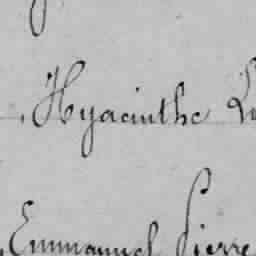 Hyacinthe
Emmanuel Pierre